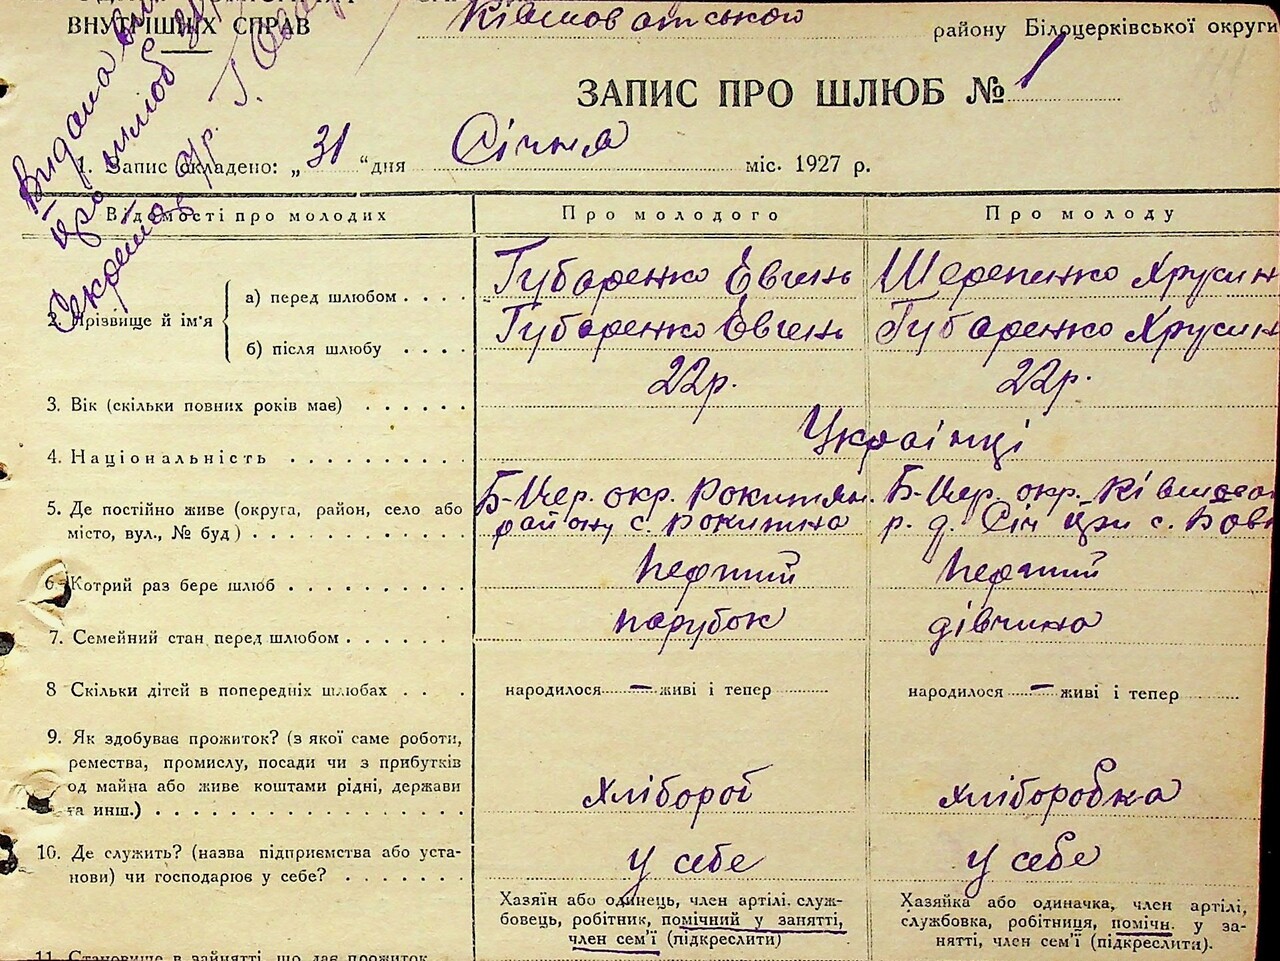 ВНУТРІШНІХ СПРАВ
району Білоцерківської округи
ЗАПИС ПРО ШЛЮБ № 1
Видана
про шлюб
Секретар
1. Запис складено: „31“ дня Січня міс. 1927 р.
Відомості про молодих Про молодого Про молоду
2. Прізвище й ім'я
а) перед шлюбом . . . . Губаренко Евгень
б) після шлюбу . . . . Губаренко Евгень Губаренко
3. Вік (скільки повних років має) . . . . . . 22р. 22р.
4. Національність . . . . . . . . . Українці
5. Де постійно живе (округа, район, село або Б-Цер. окр. Рокитян. Б-Цер. окр.
місто, вул., № буд ) . . . . . . . . . . . району с. Рокитна р. д. Січ
6. Котрий раз бере шлюб . . . . . . . . . Перший Перший
7. Семейний стан перед шлюбом . . . . . . парубок дівчина
8 Скільки дітей в попередніх шлюбах . . . народилося – живі і тепер народилося – живі і тепер
9. Як здобуває прожиток? (з якої саме роботи,
ремества, промислу, посади чи з прибутків
од майна або живе коштами рідні, держави
та инш.) . . . . . . . . . . . . . . . . хлібороб хліборобка
10. Де служить? (назва підприємства або уста-
нови) чи господарює у себе? . . . . . . . у себе у себе
Хазяїн або одинець, член артілі. служ-
бовець, робітник, помічний у занятті,
член сем'ї (підкреслити)
Хазяйка або одиначка, член артілі,
службовка, робітниця, помічн. у за-
нятті, член сем'ї (підкреслити).
11. Становище в зайнятті, що дає прожиток